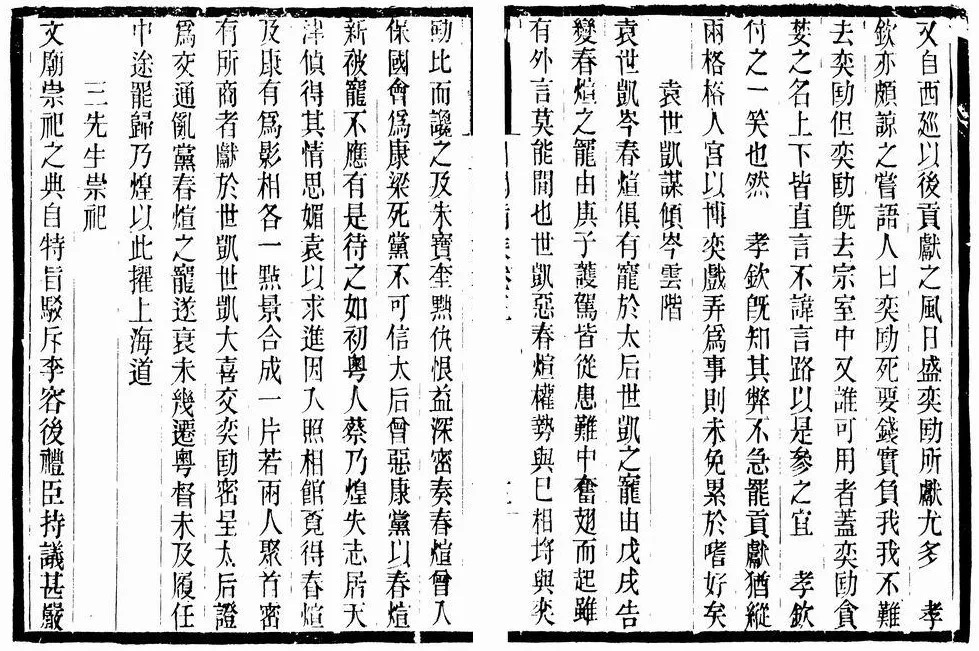 又自西巡以後貢獻之風日盛奕劻所獻尤多　孝
欽亦頗諒之嘗語人曰奕劻死要錢實負我我不難
去奕劻但奕劻旣去宗室中又誰可用者蓋奕劻貪
婪之名上下皆直言不諱言路以是參之宜　孝欽
付之一笑也然　孝欽旣知其弊不急罷貢獻猶縱
兩格格入宮以博奕戲弄爲事則未免累於嗜好矣
袁世凱謀傾岑雲階
袁世凱岑春煊俱有寵於太后世凱之寵由戊戌告
變春煊之寵由庚子護駕皆從患難中奮翅而起雖
有外言莫能間也世凱惡春煊權勢與已相埒與奕
劻比而讒之及朱寶奎黜仇恨益深密奏春煊曾入
保國會爲康梁死黨不可信太后曾惡康黨以春煊
新被寵不應有是待之如初粵人蔡乃煌失志居天
津偵得其情思媚袁以求進因入照相館覓得春煊
及康有爲影相各一點景合成一片若兩人聚首密
有所商者獻於世凱世凱大喜交奕劻密呈太后證
爲交通亂黨春煊之寵遂衰未幾遷粵督未及履任
中途罷歸乃煌以此擢上海道
三先生崇祀
文廟崇祀之典自特旨駁斥李容後禮臣持議甚嚴